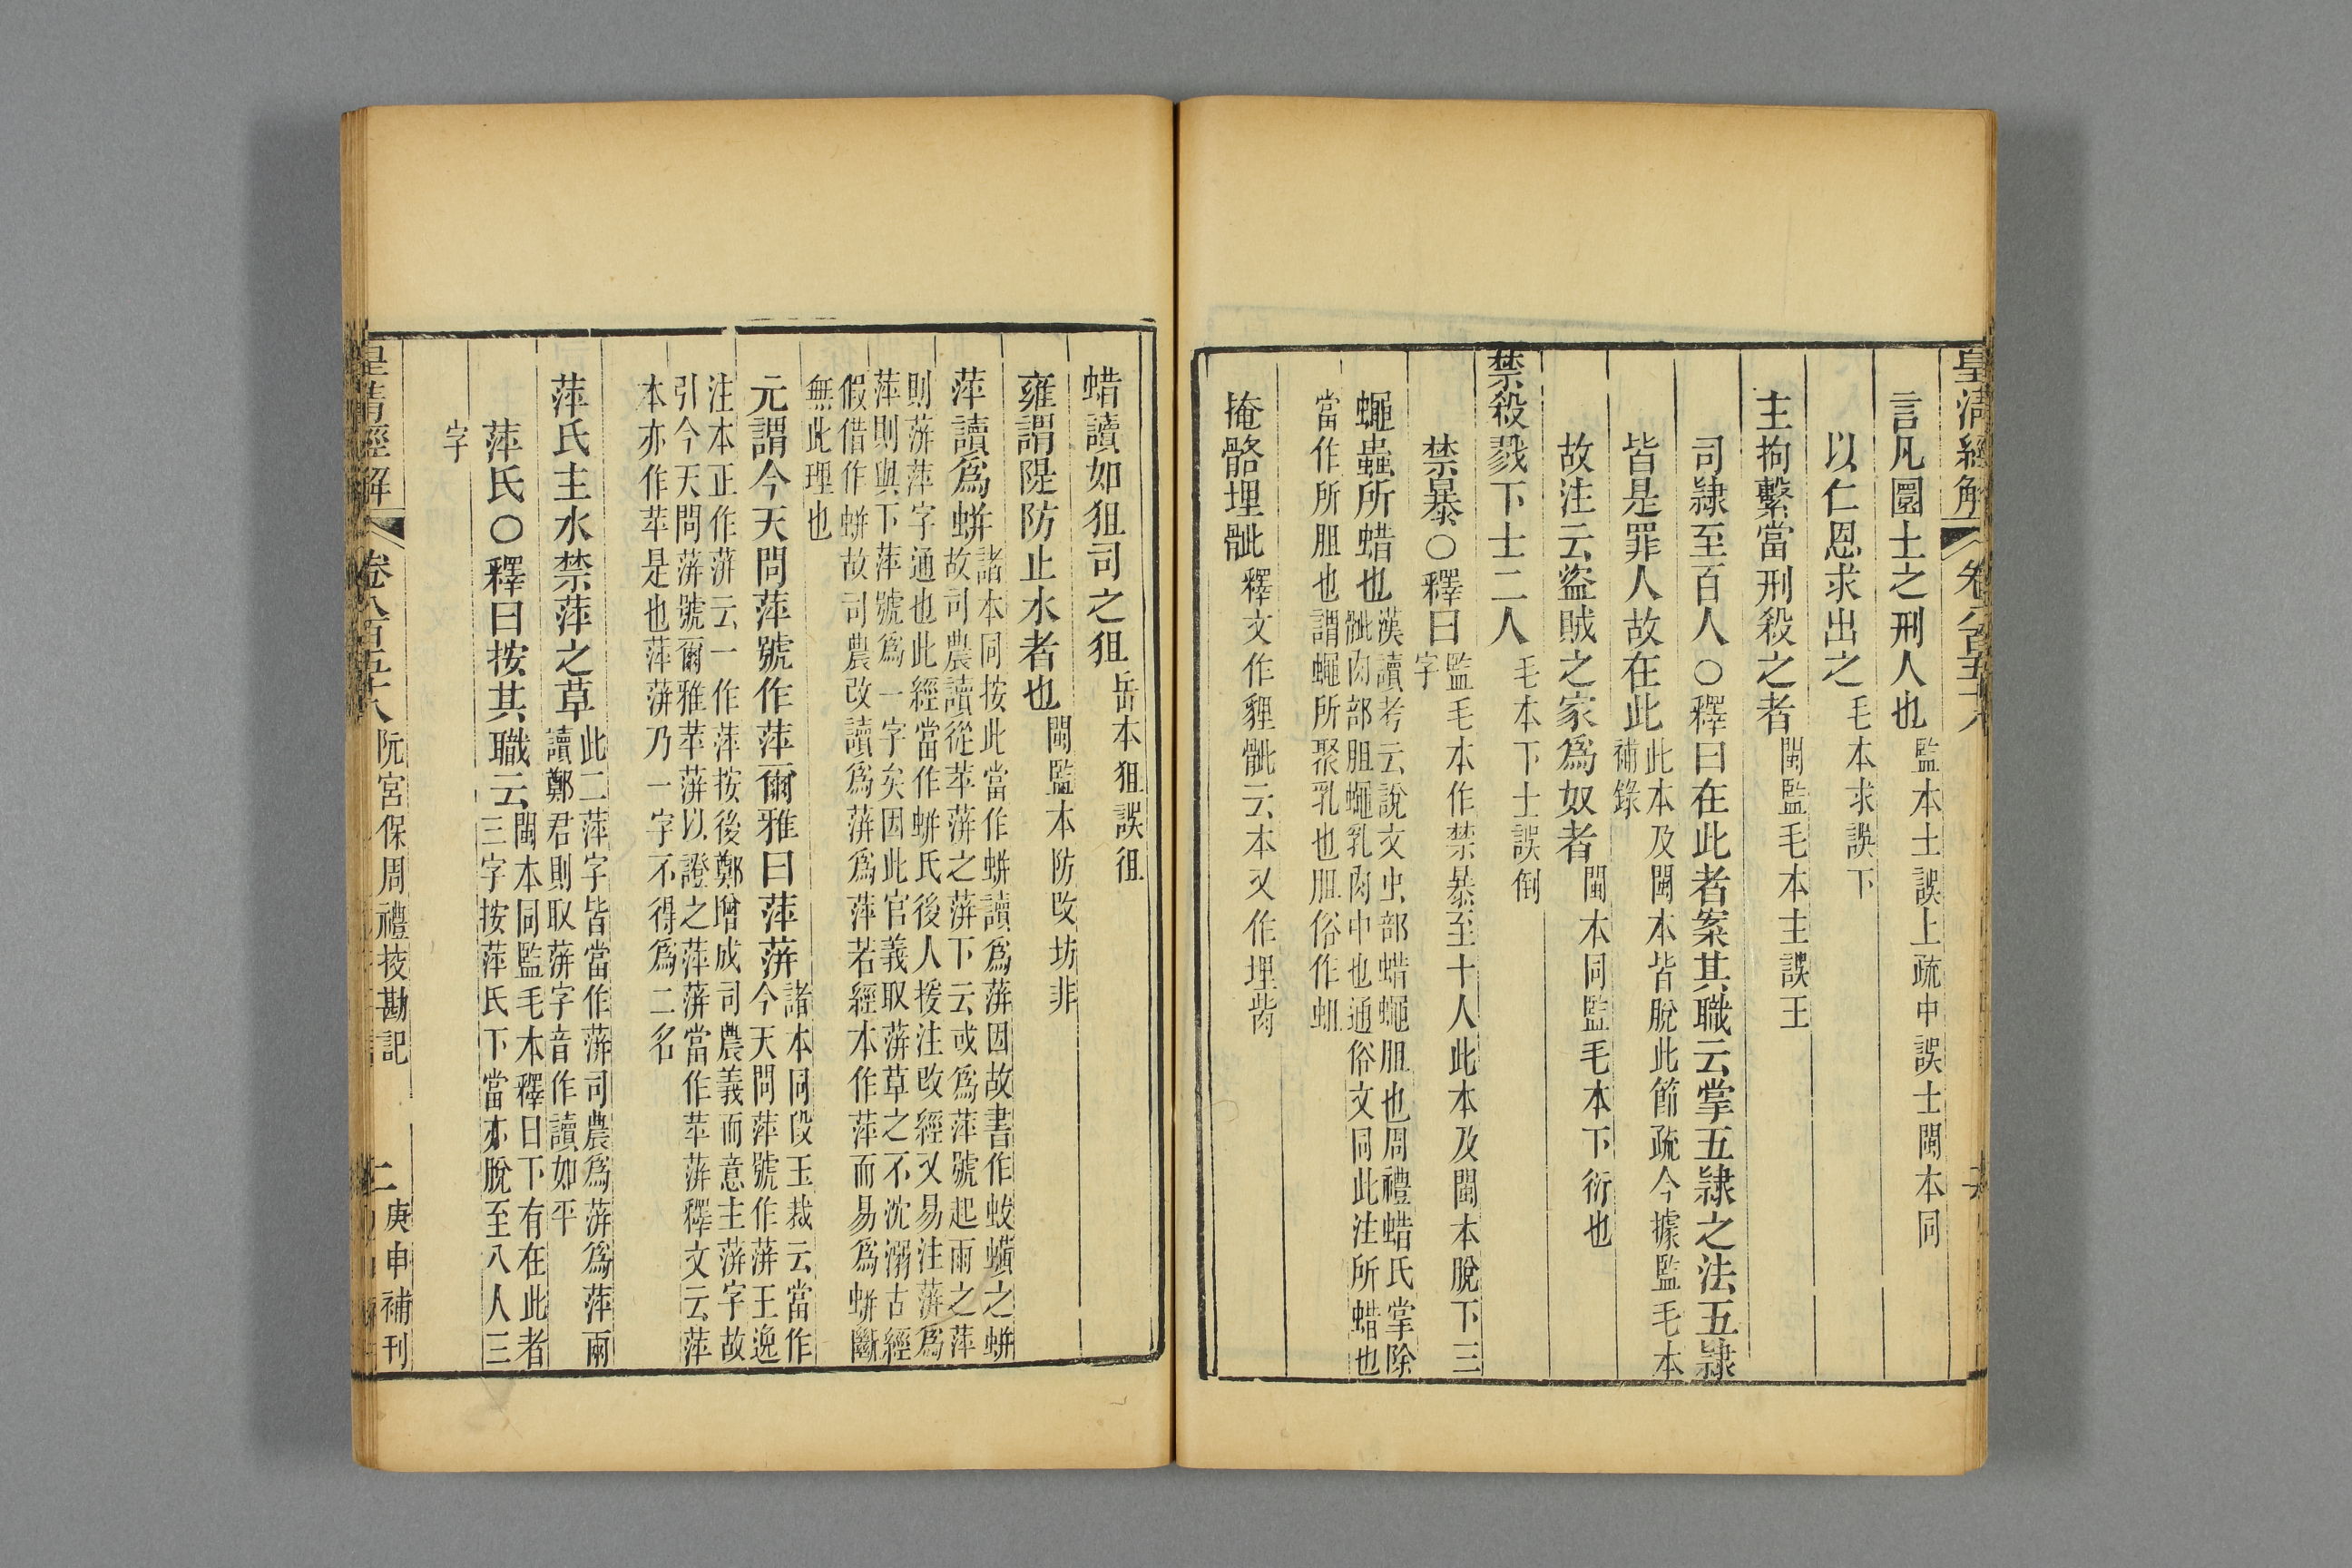 皇清經解 卷八百五十八
言凡圜土之刑人也監本土誤上疏中誤士閩本同
以仁恩求出之毛本求誤下
主拘繫當刑殺之者閩監毛本主誤王
司隷至百人○釋曰在此者案其職云掌五隷之法五隷
皆是罪人故在此此本及閩本皆脫此節疏今據監毛本
補錄
故注云盜賊之家爲奴者閩本同監毛本下衍也
禁殺戮下士二人毛本下士誤倒
禁暴○釋曰監毛本作禁暴至十人此本及閩本脫下三
字
蠅蟲所蜡也漢讀考云說文虫部蜡蠅胆也周禮蜡氏掌除
骴肉部胆蠅乳肉中也通俗文同此注所蜡也
當作所胆也謂蠅所聚乳也胆俗作蛆
掩骼埋骴釋文作貍骴云本又作埋胔
蜡讀如狙司之狙岳本狙誤徂
雍謂隄防止水者也閩監本防改坊非
萍讀爲蛢諸本同按此當作蛢讀爲蓱因故書作蛂蟥之蛢
故司農讀從苹蓱之蓱下云或爲萍號起雨之萍
則蓱萍字通也此經當作蛢氏後人援注改經又易注蓱爲
萍則與下萍號爲一字矣因此官義取蓱草之不沈溺古經
假借作蛢故司農改讀爲蓱爲萍若經本作萍而易爲蛢斷
無此理也
元謂今天問萍號作萍爾雅曰萍蓱諸本同段玉裁云當作
今天問萍號作蓱王逸
注本正作蓱云一作萍按後鄭增成司農義而意主蓱字故
引今天問蓱號爾雅苹蓱以證之萍蓱當作苹蓱釋文云萍
本亦作苹是也萍蓱乃一字不得爲二名
萍氏主水禁萍之草此二萍字皆當作蓱司農爲蓱爲萍兩
讀鄭君則取蓱字音作讀如平
萍氏○釋曰按其職云閩本同監毛本釋曰下有在此者
三字按萍氏下當亦脫至八人三
字
皇清經解 卷八百五十八 阮宮保周禮挍勘記 二 庚申補刊